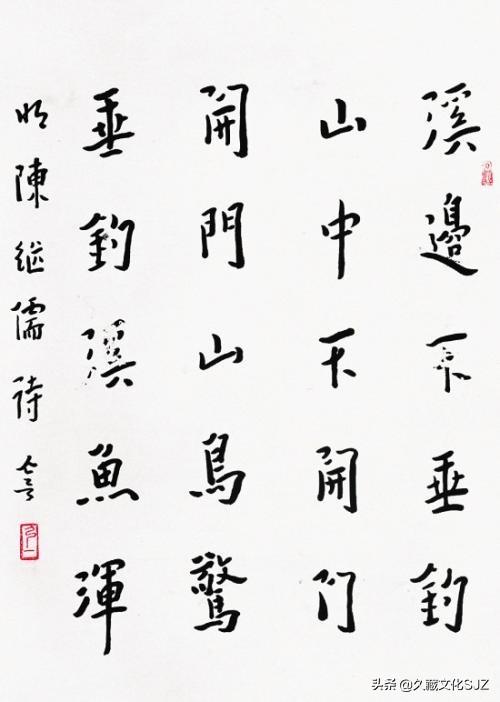 溪邊不垂釣
山中不開门
開門山鳥驚
垂釣溪魚渾
明陳继儒詩
头条 @久藏文化SJZ